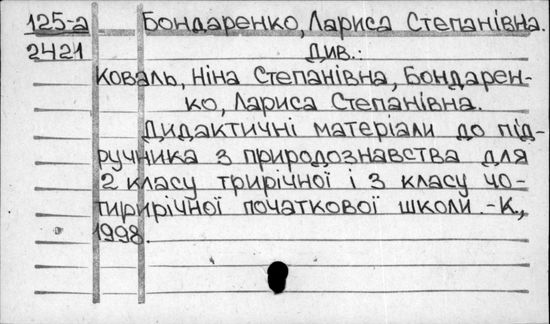 125-а Бондаренко, Лариса Степанівна.
2421 див.:
Коваль, Ніна Степанівна, Бондарен-
ко, Лариса Степанівна.
Дидактичні матеріали до під-
ручника з природознавства для
2 класу трирічної і 3 класу чо-
тирирічної початкової школи.-К.,
1998.